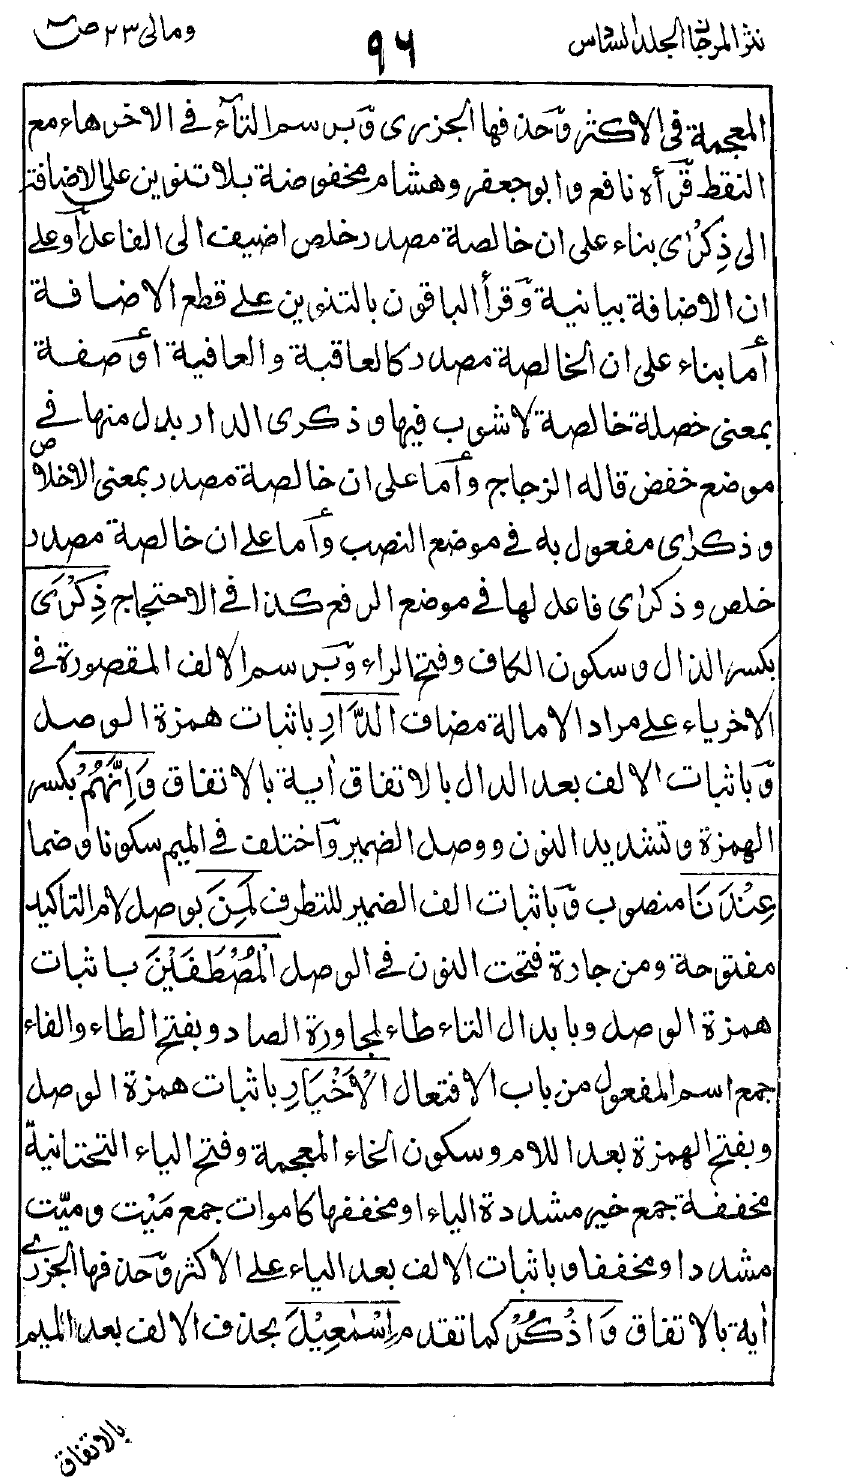 نثر المرجان الجلد السادس
٩٦
ومالى ٢٣ ص
المعجمة في الاكثر وحذفها الجزرى وبرسم التاء في الاخر هاء مع
النقط قرأه نافع وابو جعفر وهشام مخفوضة بلا تنوين على الاضافة
الى ذِكْرٰى بناء على ان خالصة مصدر خلص اضيف الى الفاعل او على
ان الاضافة بيانية وقرأ الباقون بالتنوين على قطع الاضافة
أما بناء على ان الخالصة مصدر كالعاقبة والعافية أو صفة
بمعنى خصلة خالصة لا شوب فيها وذكرى الدار بدل منها في
موضع خفض قاله الزجاج وأما على ان خالصة مصدر بمعنى الاخلاص
وذكرٰى مفعول به في موضع النصب وأما على ان خالصة مصدر
خلص وذكرٰى فاعل لها في موضع الرفع كذا في الاحتجاج ذِكْرَى
بكسر الذال وسكون الكاف وفتح الراء وبرسم الالف المقصورة في
الاخر ياء على مراد الامالة مضاف الدَّارِ باثبات همزة الوصل
وباثبات الالف بعد الدال بالاتفاق أية بالاتفاق وَاِنَّهُمْ بكسر
الهمزة وتشديد النون ووصل الضمير واختلف في الميم سكونا وضما
عِنْدَنَا منصوب وباثبات الف الضمير للتطرف لَمِنَ بوصل لام التاكيد
مفتوحة ومن جارة فتحت النون في الوصل الْمُصْطَفَيْنَ باثبات
همزة الوصل وبابدال التاء طاء لمجاورة الصاد وبفتح الطاء والفاء
جمع اسم المفعول من باب الافتعال الْاَخْيَارِ باثبات همزة الوصل
وبفتح الهمزة بعد اللام وسكون الخاء المعجمة وفتح الياء التحتانية
مخففة جمع خير مشددة الياء او مخففها كاموات جمع مَيْت وميّت
مشددا ومخففا وباثبات الالف بعد الياء على الاكثر وحذفها الجزرى
أية بالاتفاق وَاذْكُرْ كما تقدم اِسْمٰعِيْلَ بحذف الالف بعد الميم
بالاتفاق